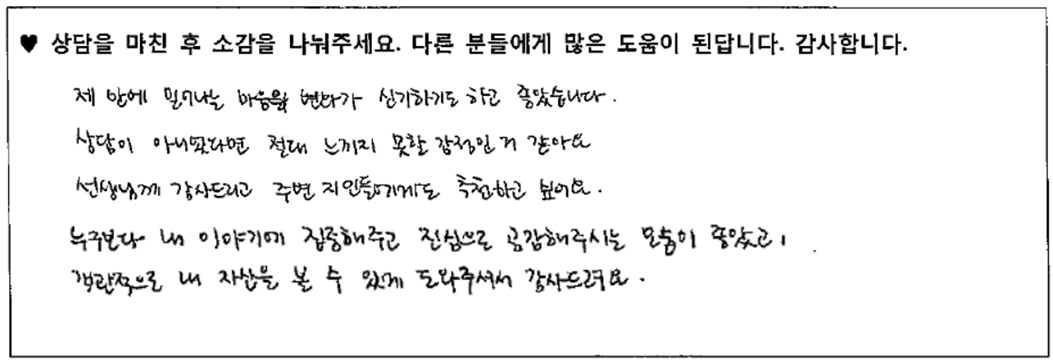 ♥ 상담을 마친 후 소감을 나눠주세요. 다른 분들에게 많은 도움이 된답니다. 감사합니다.
제 안에 일어나는 마음의 변화가 신기하기도 하고 좋았습니다.
상담이 아니였다면 절대 느끼지 못할 감정인 거 같아요
선생님께 감사드리고 주변 지인들에게도 추천하고 싶어요.
누구보다 내 이야기에 집중해주고 진심으로 공감해주시는 모습이 좋았고,
객관적으로 내 자신을 볼 수 있게 도와주셔서 감사드려요.